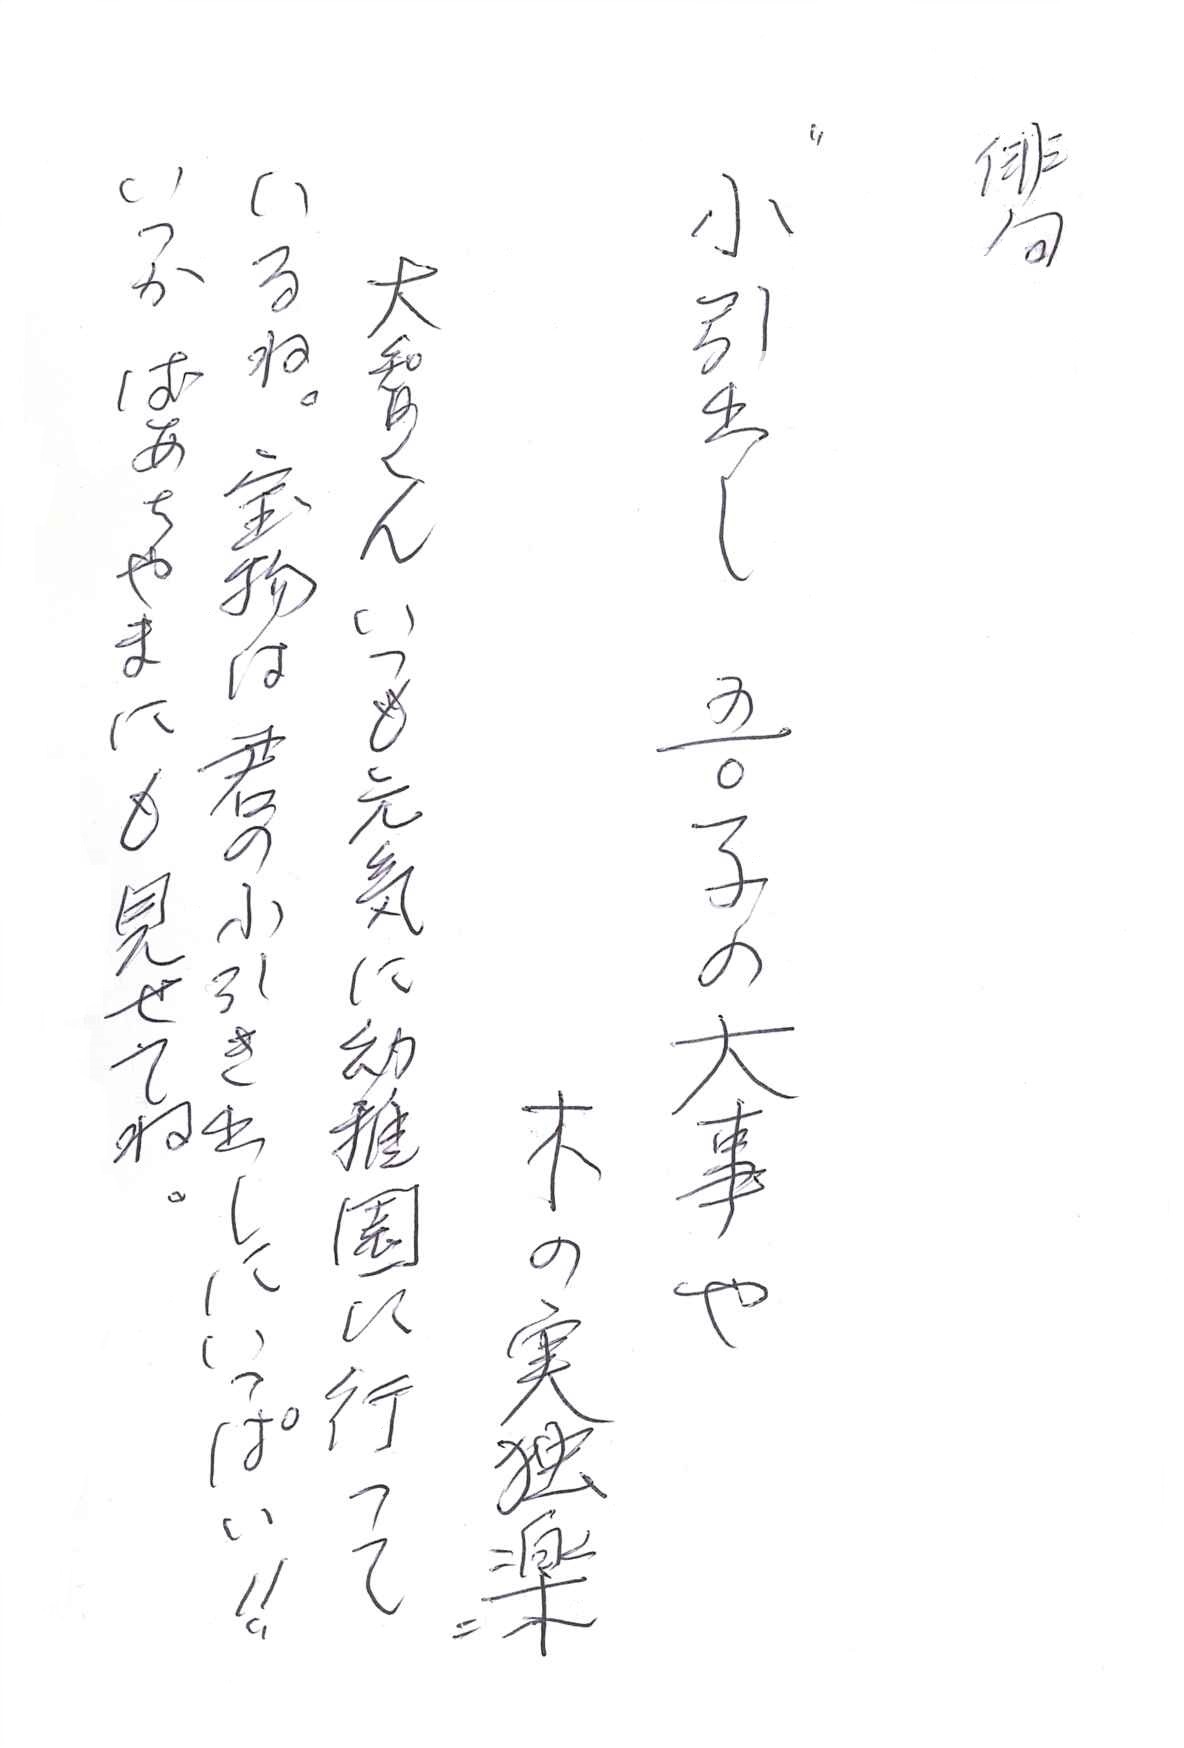 俳句
"小引出し 吾子の大事や
木の実独楽"
大智くん いつも元気に幼稚園に行って
いるね。宝物は君の小引き出しにいっぱい!!
いつか ばあちゃまにも見せてね。